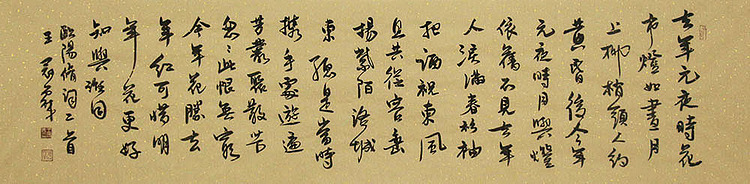 去年元夜時花
市燈如晝月
上柳梢頭人約
黃昏後今年
元夜時月與燈
依舊不見去年
人淚滿春衫袖
把酒祝東風
且共從容垂
楊紫陌洛城
東總是當時
攜手處遊遍
芳叢聚散苦
匆々此恨無窮
今年花勝去
年紅可惜明
年花更好
知與誰同
歐陽修詞二首
王